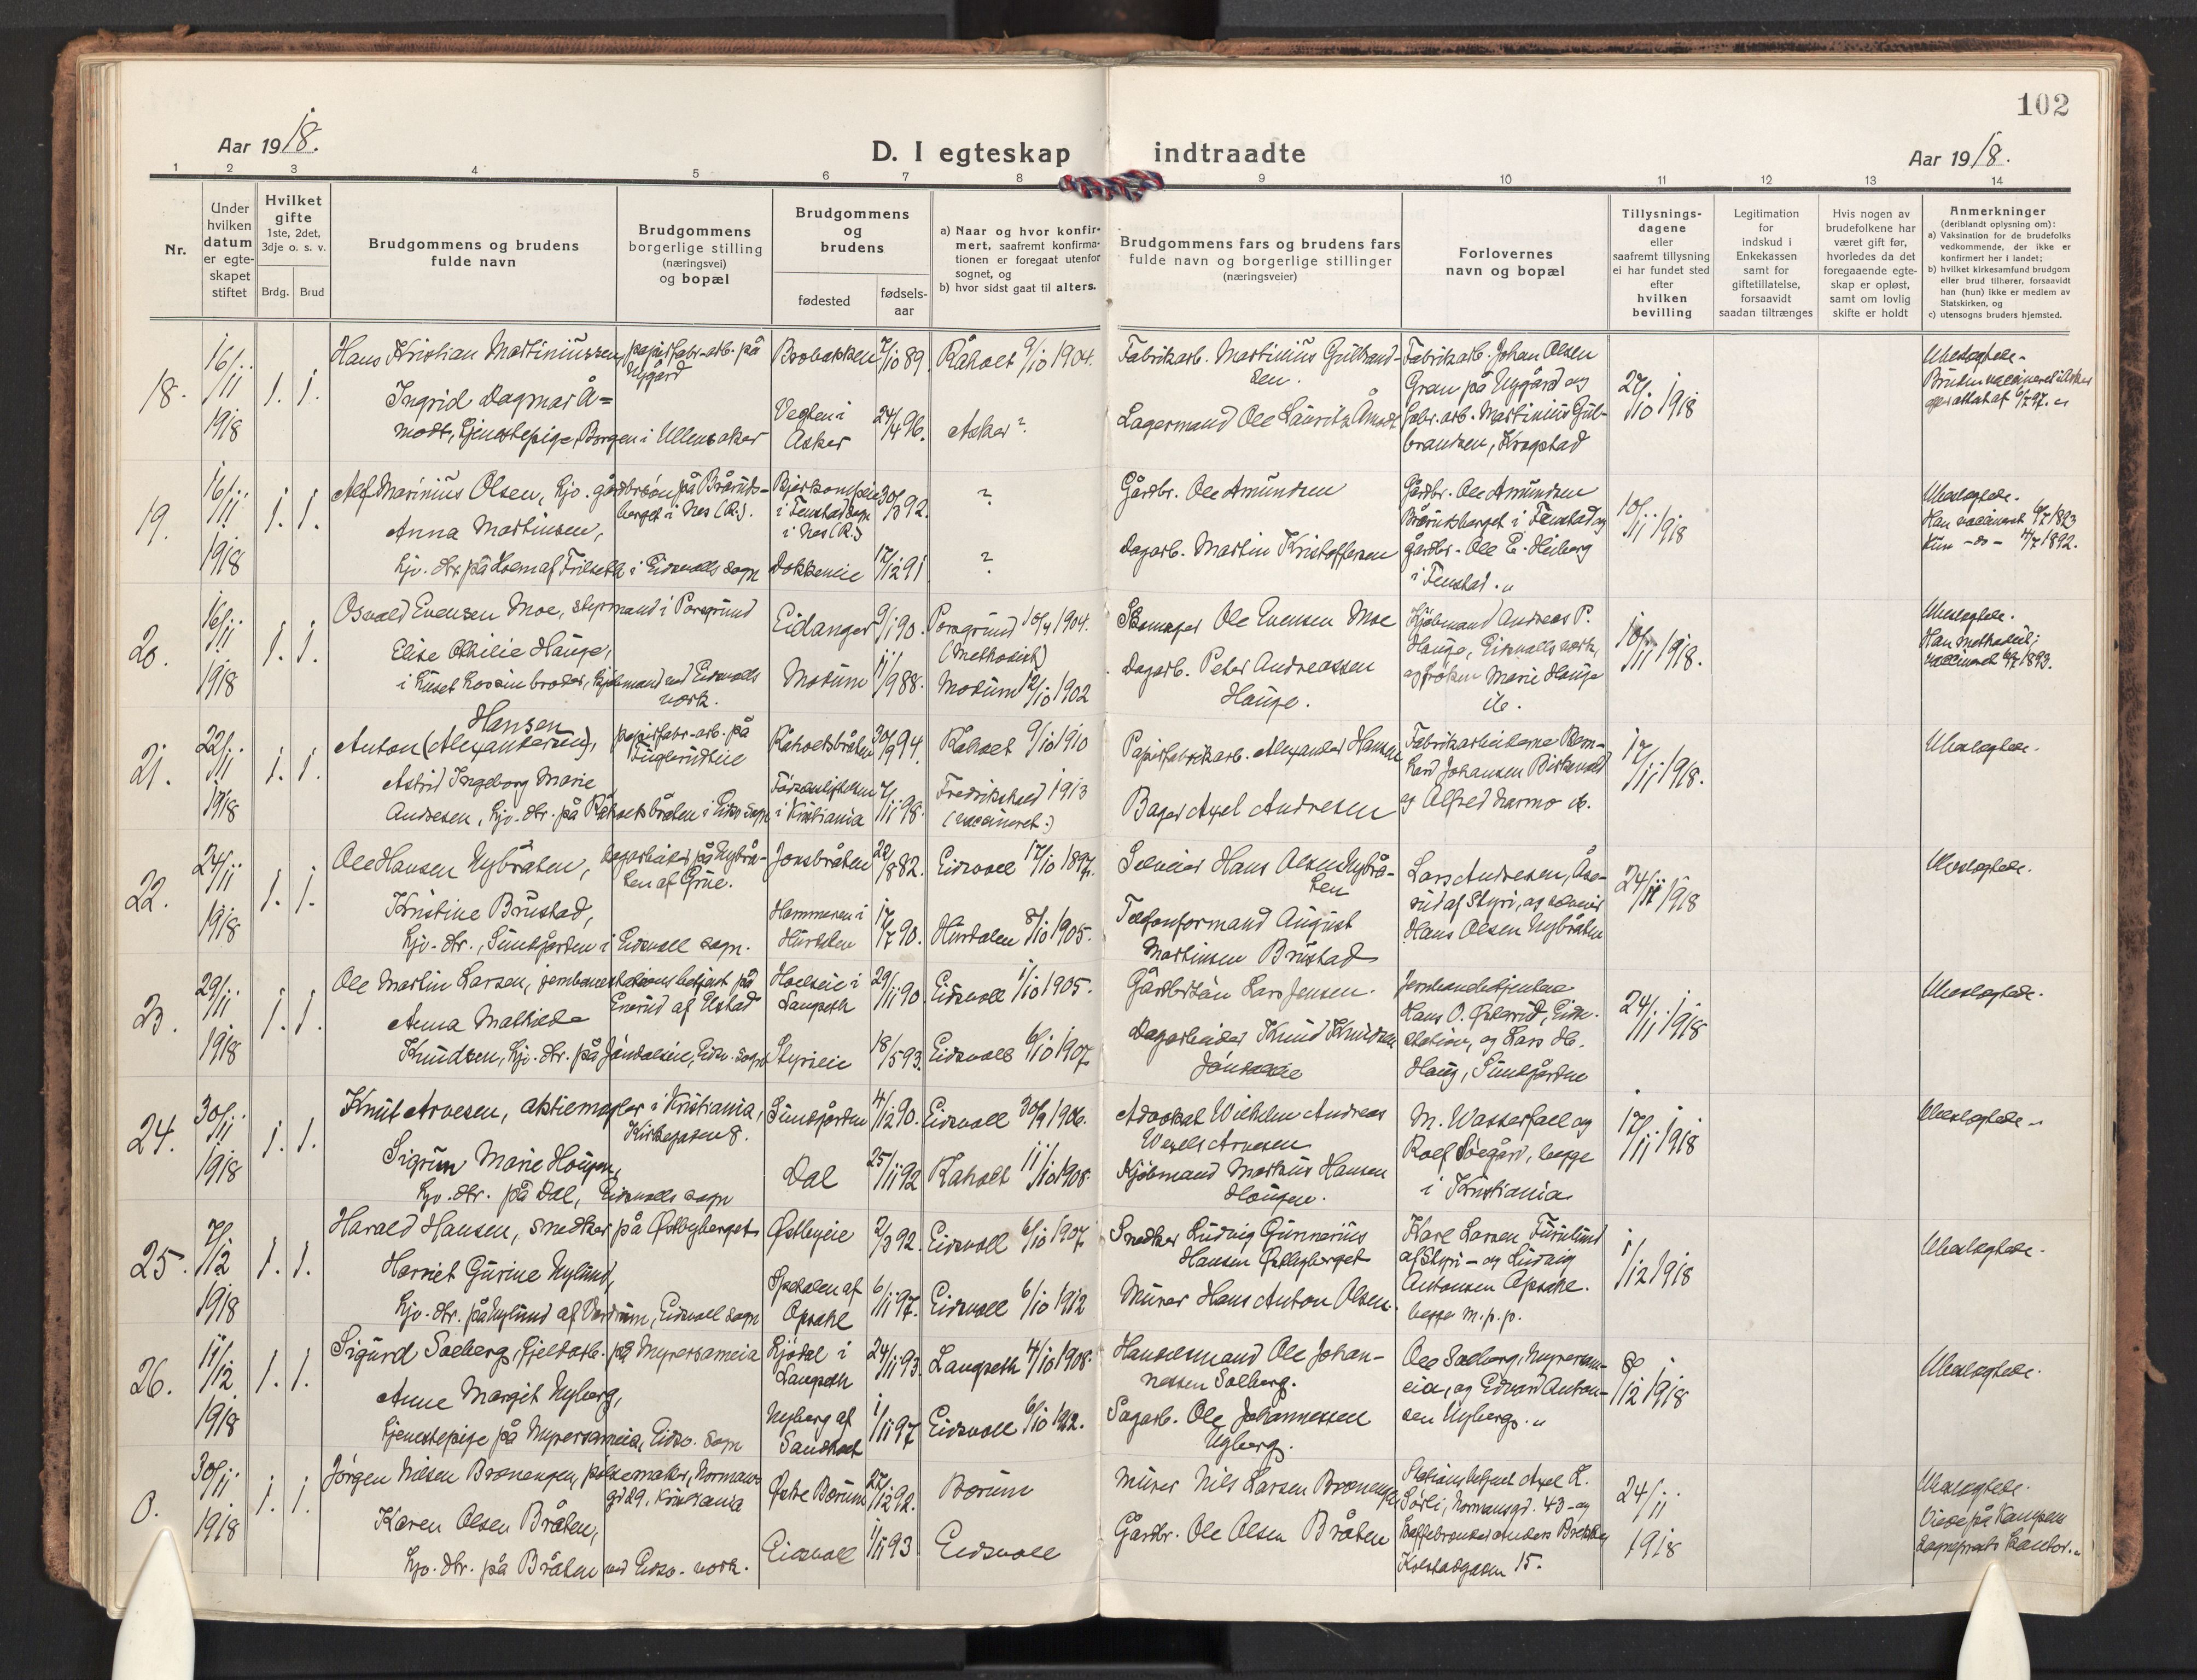 102
Aar 1918.
D. I egteskap indtraadte
Aar 1918.
1 2 3 4 5 6 7 8 9 10 11 12 13 14
Nr.
Under hvilken datum er egteskapet stiftet
Hvilket gifte 1ste, 2det, 3dje o. s. v.
Brdg. Brud
Brudgommens og brudens fulde navn
Brudgommens borgerlige stilling (næringsvei) og bopæl
Brudgommens og brudens
fødested
fødsels-aar
a) Naar og hvor konfirmert, saafremt konfirmationen er foregaat utenfor sognet, og
b) hvor sidst gaat til alters.
Brudgommens fars og brudens fars fulde navn og borgerlige stillinger (næringsveier)
Forlovernes navn og bopæl
Tillysningsdagene eller saafremt tillysning ei har fundet sted efter hvilken bevilling
Legitimation for indskud i Enkekassen samt for giftetillatelse, forsaavidt saadan tiltrænges
Hvis nogen av brudefolkene har været gift før, hvorledes da det foregaaende egteskap er opløst, samt om lovlig skifte er holdt
Anmerkninger
(deriblandt oplysning om):
a) Vaksination for de brudefolks vedkommende, der ikke er konfirmert her i landet;
b) hvilket kirkesamfund brudgom eller brud tilhører, forsaavidt han (hun) ikke er medlem av Statskirken, og
c) utensogns bruders hjemsted.
18. 16/11 1918 1. 1.
Hans Kristian Martiniussen, papirfabr-arb. på Nygård
7/10 89. Råholt 9/10 1904.
Fabrikarb. Martinius Gulbrandsen.
Ingrid Dagmar Åmodt, tjenestepige, Borgen i Ullensaker
Asker 24/4 96. Asker?
Lagermand Ole Lauritz Åmodt
Fabrikarb. Johan Olsen Gran på Nygård og fabr.arb. Martinius Gulbrandsen, Krogstad
27/10 1918
Ubeslægtede.
19. 16/11 1918 1. 1.
Alf Marinius Olsen, hjv. gårdbrsøn på
i Nes (R.).
i Fenstad sogn i Nes (R.) 30/3 92. ?
Gårdbr. Ole Amundsen
Anna Martinsen,
hjv. dtr. på Holm af i Eidsvolls sogn
Dokkeneie 17/12 91 ?
Dagarb. Martin Kristoffersen
Gårdbr. Ole Amundsen i Fenstad og gårdbr. Ole E. Heiberg i Fenstad.
10/11 1918
Ubeslægtede.
Han vaccineret 6/7 1893
Hun -do- 1892.
20. 16/11 1918 1. 1.
Osvald Evensen Moe, styrmand i Porsgrund
Eidanger 9/1 90. Porsgrund 10/4 1904. (Methodist)
Skomager Ole Evensen Moe
Elise Othilie Hauge,
i huset hos sin broder, kjøbmand ved Eidsvolls verk.
Modum 11/9 88. Modum 12/10 1902
Dagarb. Peter Andreassen Hauge.
Kjøbmand Andreas P. Hauge, Eidsvolls verk, og frøken Marie Hauge ib.
10/11 1918.
Ubeslægtede.
Han Methodist; vaccineret 1893.
21. 22/11 1918 1. 1.
Hansen
Anton (Alexandersen), papirfabr-arb. på Fuglerudeie
Råholtsbråten 30/9 94. Råholt 9/10 1910
Papirfabrikarb. Alexander Hansen
Astrid Ingeborg Marie Andresen, hjv. dtr. på Råholtsbråten i Eidsv. sogn
i Kristiania 7/11 98. Fredrikshald 1913 (vaccineret.)
Bager Axel Andresen
Fabrikarbeiderne Bernhard Johansen og Alfred ib.
17/11 1918.
Ubeslægtede.
22. 24/11 1918 1. 1.
Ole Hansen Nybråten, dagarbeider på Nybråten af Grue.
Jonsbråten 22/8 82. Eidsvoll 17/10 1897.
Selveier Hans Olsen Nybråten
Kristine Brustad,
hjv. dtr., Sundgården i Eidsvoll sogn.
Hammeren i Hurdalen 17/7 90. Hurdalen 8/10 1905.
Telefonformand August Martinsen Brustad
Lars Andresen, Åserud af Styri, og selveier Hans Olsen Nybråten
24/11 1918
Ubeslægtede.
23. 29/11 1918 1. 1.
Ole Martin Larsen, jernbanestationsbetjent på af Ulstad
Holseie i Langseth 29/11 90. Eidsvoll 1/10 1905.
Gårdbrsøn Lars Jensen.
Anna Mathilde Knudsen, hjv. dtr. på Jøndaleie, Eidsv. sogn
Styrieie 18/5 93. Eidsvoll 6/10 1907.
Dagarbeider Knud Knudsen
Jernbanebetjentene Hans O. Eidsv. station, og Lars H. Haug, Sundgården
24/11 1918
Ubeslægtede.
24. 30/11 1918 1. 1.
Knut Arvesen, aktiemægler i Kristiania, Kirkegaden 8.
Sundgården 4/12 90. Eidsvoll 30/9 1906.
Advokat Wilhelm Andreas Wexels Arvesen
Sigrun Marie Hougen,
hjv. dtr. på Dal, Eidsvolls sogn
Dal 25/11 92 Råholt 11/10 1908.
Kjøbmand Markus Hansen Hougen.
M. Wasserfall og Rolf Søegård, begge i Kristiania
17/11 1918
Ubeslægtede.
25. 7/12 1918 1. 1.
Harald Hansen, snedker på Østbyberget
Østbyeie 2/3 92. Eidsvoll 6/10 1907.
Snedker Ludvig Gunnerius Hansen Østbyberget
Harriet Gurine Nylund,
hjv. dtr. på Nylund af Eidsvoll sogn
af Opsahl 6/11 97. Eidsvoll 6/10 1912
Murer Hans Anton Olsen.
Karl Larsen Furulund af Styri - og Ludvig Antonsen Opsahl. begge m.p.p.
1/12 1918
Ubeslægtede.
26. 11/12 1918 1. 1.
Sigurd Solberg, fjeldarb. på Myrersameia
i Langseth 24/11 93. Langseth 4/10 1908.
Handelsmand Ole Johannessen Solberg.
Anne Margit Nyberg,
tjenestepige på Myrersameia, Eidsv. sogn
Nyberg af Sandholt 1/11 97 Eidsvoll 6/10 1912.
Sagarb. Ole Johannessen Nyberg.
Ole Solberg, Myrersameia, og Edvard Antonsen Nyberg.
8/12 1918
Ubeslægtede.
0. 30/11 1918 1. 1.
Jørgen Nilsen Brænengen, pølsemaker, Normansgd 29, Kristiania
Østre Bærum 27/12 92. Bærum
Murer Nils Larsen Brænengen
Karen Olsen Bråten,
hjv. dtr. på Bråten ved Eidsv. verk.
Eidsvoll 1/11 93 Eidsvoll
Gårdbr. Ole Olsen Bråten
Stationsbetjent Axel L. Sørli, Normansgd. 43 - og Anders Brekke, Kolstadgaden 15.
24/11 1918
Ubeslægtede.
Viede på Kampens sogneprests kontor.